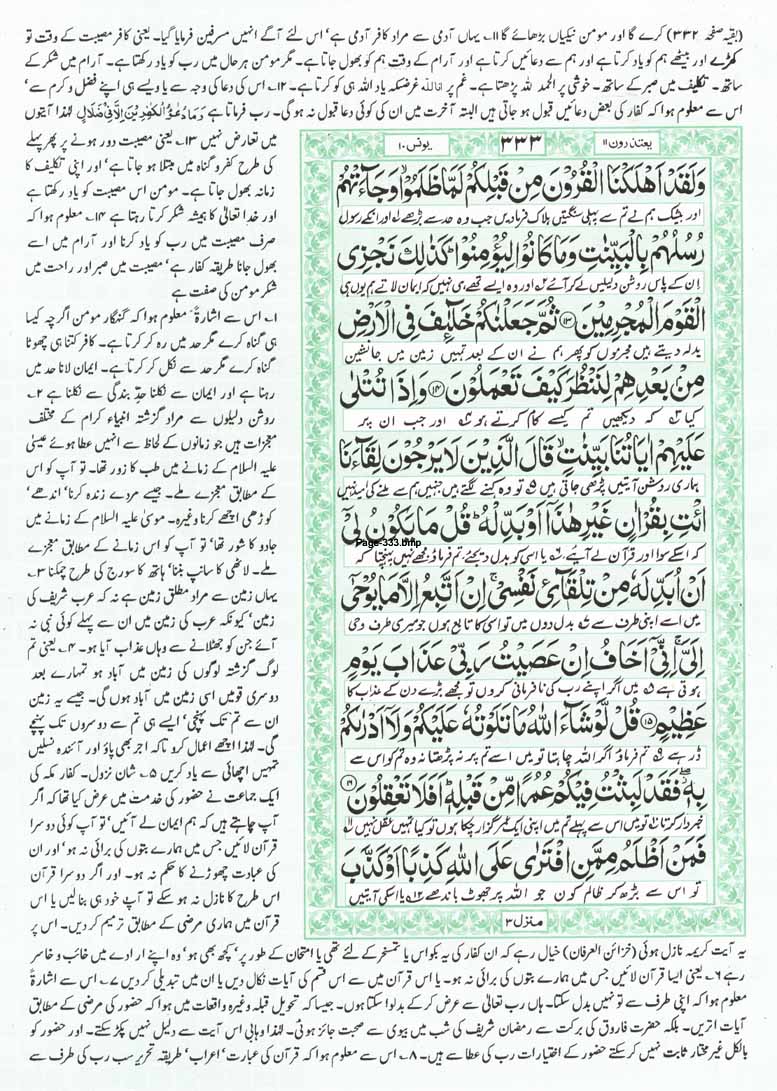 (بقیہ صفحہ ۳۳۲) کرے گا اور مومن نیکیاں بڑھائے گا ۱۱؎ یہاں آدمی سے مراد کافر آدمی ہے‘ اس لئے آگے انہیں مسرفین فرمایا گیا۔ یعنی کافر مصیبت کے وقت تو
کھڑے اور بیٹھے ہم کو یاد کرتا ہے اور ہم سے دعائیں کرتا ہے اور آرام کے وقت ہم کو بھول جاتا ہے۔ مگر مومن ہر حال میں رب کو یاد رکھتا ہے۔ آرام میں شکر کے
ساتھ۔ تکلیف میں صبر کے ساتھ۔ خوشی پر الحمد للہ پڑھتا ہے۔ غم پر اناللہ غرضکہ یاد اللہ ہی کو کرتا ہے۔ ۱۲؎ اس کی دعا کی وجہ سے یا ویسے ہی اپنے فضل و کرم سے‘
اس سے معلوم ہوا کہ کفار کی بعض دعائیں قبول ہو جاتی ہیں البتہ آخرت میں ان کی کوئی دعا قبول نہ ہو گی۔ رب فرماتا ہے وَمَا دُعَآءُ الْكٰفِرِيْنَ اِلَّا فِيْ ضَلٰلٍ لہٰذا آیتوں
میں تعارض نہیں ۱۳؎ یعنی مصیبت دور ہونے پر پھر پہلے
کی طرح کفر و گناہ میں مبتلا ہو جاتا ہے‘ اور اپنی تکلیف کا
زمانہ بھول جاتا ہے۔ مومن اس مصیبت کو یاد رکھتا ہے
اور خدا تعالیٰ کا ہمیشہ شکر کرتا رہتا ہے ۱۴؎ معلوم ہوا کہ
صرف مصیبت میں رب کو یاد کرنا اور آرام میں اسے
بھول جانا طریقہ کفار ہے‘ مصیبت میں صبر اور راحت میں
شکر مومن کی صفت ہے
۱؎ اس سے اشارۃً معلوم ہوا کہ گنہگار مومن اگرچہ کیسا
ہی گناہ کرے مگر حد میں رہ کر کرتا ہے۔ کافر کتنا ہی چھوٹا
گناہ کرے مگر حد سے نکل کر کرتا ہے۔ ایمان لانا حد میں
رہنا ہے اور ایمان سے نکلنا حدِّ بندگی سے نکلنا ہے ۲؎
روشن دلیلوں سے مراد گزشتہ انبیاء کرام کے مختلف
معجزات ہیں جو زمانوں کے لحاظ سے انہیں عطا ہوئے عیسیٰ
علیہ السلام کے زمانے میں طب کا زور تھا۔ تو آپ کو اس
کے مطابق معجزے ملے۔ جیسے مردے زندہ کرنا‘ اندھے‘
کوڑھی اچھے کرنا وغیرہ۔ موسیٰ علیہ السلام کے زمانے میں
جادو کا شور تھا‘ تو آپ کو اس زمانے کے مطابق معجزے
ملے۔ لاٹھی کا سانپ بننا‘ ہاتھ کا سورج کی طرح چمکنا ۳؎
یہاں زمین سے مراد مطلق زمین ہے نہ کہ عرب شریف کی
زمین‘ کیونکہ عرب کی زمین میں ان سے پہلے کوئی نبی نہ
آئے جن کو جھٹلانے سے وہاں عذاب آیا ہو۔ ۴؎ یعنی تم
لوگ گزشتہ لوگوں کی زمین میں آباد ہو تمہارے بعد
دوسری قومیں اسی زمین میں آباد ہوں گی۔ جیسے یہ زمین
ان سے تم تک پہنچی‘ ایسے ہی تم سے دوسروں تک پہنچے
گی۔ لہٰذا اچھے اعمال کرو تاکہ اجر بھی پاؤ اور آئندہ نسلیں
تمہیں اچھائی سے یاد کریں ۵؎ شان نزول۔ کفار مکہ کی
ایک جماعت نے حضور کی خدمت میں عرض کیا تھا کہ اگر
آپ چاہتے ہیں کہ ہم ایمان لے آئیں‘ تو آپ کوئی دوسرا
قرآن لائیں جس میں ہمارے بتوں کی برائی نہ ہو‘ اور ان
کی عبادت چھوڑنے کا حکم نہ ہو۔ اور اگر دوسرا قرآن
اس طرح کا نازل نہ ہو سکے تو آپ خود ہی بنالیں یا اس
قرآن میں ہماری مرضی کے مطابق ترمیم کر دیں۔ اس پر
یعتذرون ۱۱
۳۳۳
یونس ۱۰
وَلَقَدْ اَهْلَكْنَا الْقُرُوْنَ مِنْ قَبْلِكُمْ لَمَّا ظَلَمُوْا وَجَآءَتْهُمْ
اور بیشک ہم نے تم سے پہلی سنگتیں ہلاک فرمادیں جب وہ حد سے بڑھے اور انکے رسول
رُسُلُهُمْ بِالْبَيِّنٰتِ وَمَا كَانُوْا لِيُؤْمِنُوْا كَذٰلِكَ نَجْزِي
ان کے پاس روشن دلیلیں لے کر آئے اور وہ ایسے تھے ہی نہیں کہ ایمان لاتے ہم یوں ہی
الْقَوْمَ الْمُجْرِمِيْنَ ۱۳ ثُمَّ جَعَلْنٰكُمْ خَلٰٓئِفَ فِي الْاَرْضِ
بدلہ دیتے ہیں مجرموں کو پھر ہم نے ان کے بعد تمہیں زمین میں جانشین
مِنْ بَعْدِهِمْ لِنَنْظُرَ كَيْفَ تَعْمَلُوْنَ ۱۴ وَاِذَا تُتْلٰى
کیا کہ دیکھیں تم کیسے کام کرتے ہو اور جب ان پر
عَلَيْهِمْ اٰيَاتُنَا بَيِّنٰتٍ قَالَ الَّذِيْنَ لَا يَرْجُوْنَ لِقَآءَنَا
ہماری روشن آیتیں پڑھی جاتی ہیں تو وہ کہنے لگتے ہیں جنہیں ہم سے ملنے کی امید نہیں
ائْتِ بِقُرْاٰنٍ غَيْرِ هٰذَآ اَوْ بَدِّلْهُ قُلْ مَا يَكُوْنُ لِيْٓ
Page-333.bmp
کہ اسکے سوا اور قرآن لے آئیے یا اسی کو بدل دیجئے تم فرماؤ مجھے نہیں پہنچتا کہ
اَنْ اُبَدِّلَهٗ مِنْ تِلْقَآئِ نَفْسِيْ اِنْ اَتَّبِعُ اِلَّا مَا يُوْحٰٓى
میں اسے اپنی طرف سے بدل دوں میں تو اسی کا تابع ہوں جو میری طرف وحی
اِلَيَّ اِنِّيْٓ اَخَافُ اِنْ عَصَيْتُ رَبِّيْ عَذَابَ يَوْمٍ
ہوتی ہے میں اگر اپنے رب کی نافرمانی کروں تو مجھے بڑے دن کے عذاب کا
عَظِيْمٍ ۱۵ قُلْ لَّوْ شَآءَ اللّٰهُ مَا تَلَوْتُهٗ عَلَيْكُمْ وَلَآ اَدْرٰىكُمْ
ڈر ہے تم فرماؤ اگر اللہ چاہتا تو میں اسے تم پر نہ پڑھتا نہ وہ تم کو اس سے
بِهٖ فَقَدْ لَبِثْتُ فِيْكُمْ عُمُرًا مِّنْ قَبْلِهٖ اَفَلَا تَعْقِلُوْنَ ۱۶
خبردار کرتا تو میں اس سے پہلے تم میں اپنی ایک عمر گزار چکا ہوں تو کیا تمہیں عقل نہیں
فَمَنْ اَظْلَمُ مِمَّنِ افْتَرٰى عَلَى اللّٰهِ كَذِبًا اَوْ كَذَّبَ
تو اس سے بڑھ کر ظالم کون جو اللہ پر جھوٹ باندھے یا اسکی آیتیں
منزل ۳
یہ آیت کریمہ نازل ہوئی (خزائن العرفان) خیال رہے کہ ان کفار کی یہ بکواس یا تمسخر کے لئے تھی یا امتحان کے طور پر‘ کچھ بھی ہو‘ وہ اپنے ارادے میں خائب و خاسر
رہے ۶؎ یعنی ایسا قرآن لائیں جس میں ہمارے بتوں کی برائی نہ ہو۔ یا اس قرآن میں سے اس قسم کی آیات نکال دیں یا ان میں تبدیلی کر دیں ۷؎ اس سے اشارۃً
معلوم ہوا کہ اپنی طرف سے تو نہیں بدل سکتا۔ ہاں رب تعالیٰ سے عرض کر کے بدلوا سکتا ہوں۔ جیسا کہ تحویل قبلہ وغیرہ واقعات میں ہوا کہ حضور کی مرضی کے مطابق
آیات اتریں۔ بلکہ حضرت فاروق کی برکت سے رمضان شریف کی شب میں بیوی سے صحبت جائز ہوئی۔ لہٰذا وہابی اس آیت سے دلیل نہیں پکڑ سکتے۔ اور حضور کو
بالکل غیر مختار ثابت نہیں کر سکتے حضور کے اختیارات رب کی عطا سے ہیں۔ ۸؎ اس سے معلوم ہوا کہ قرآن کی عبارت‘ اعراب‘ طریقہ تحریر سب رب کی طرف سے